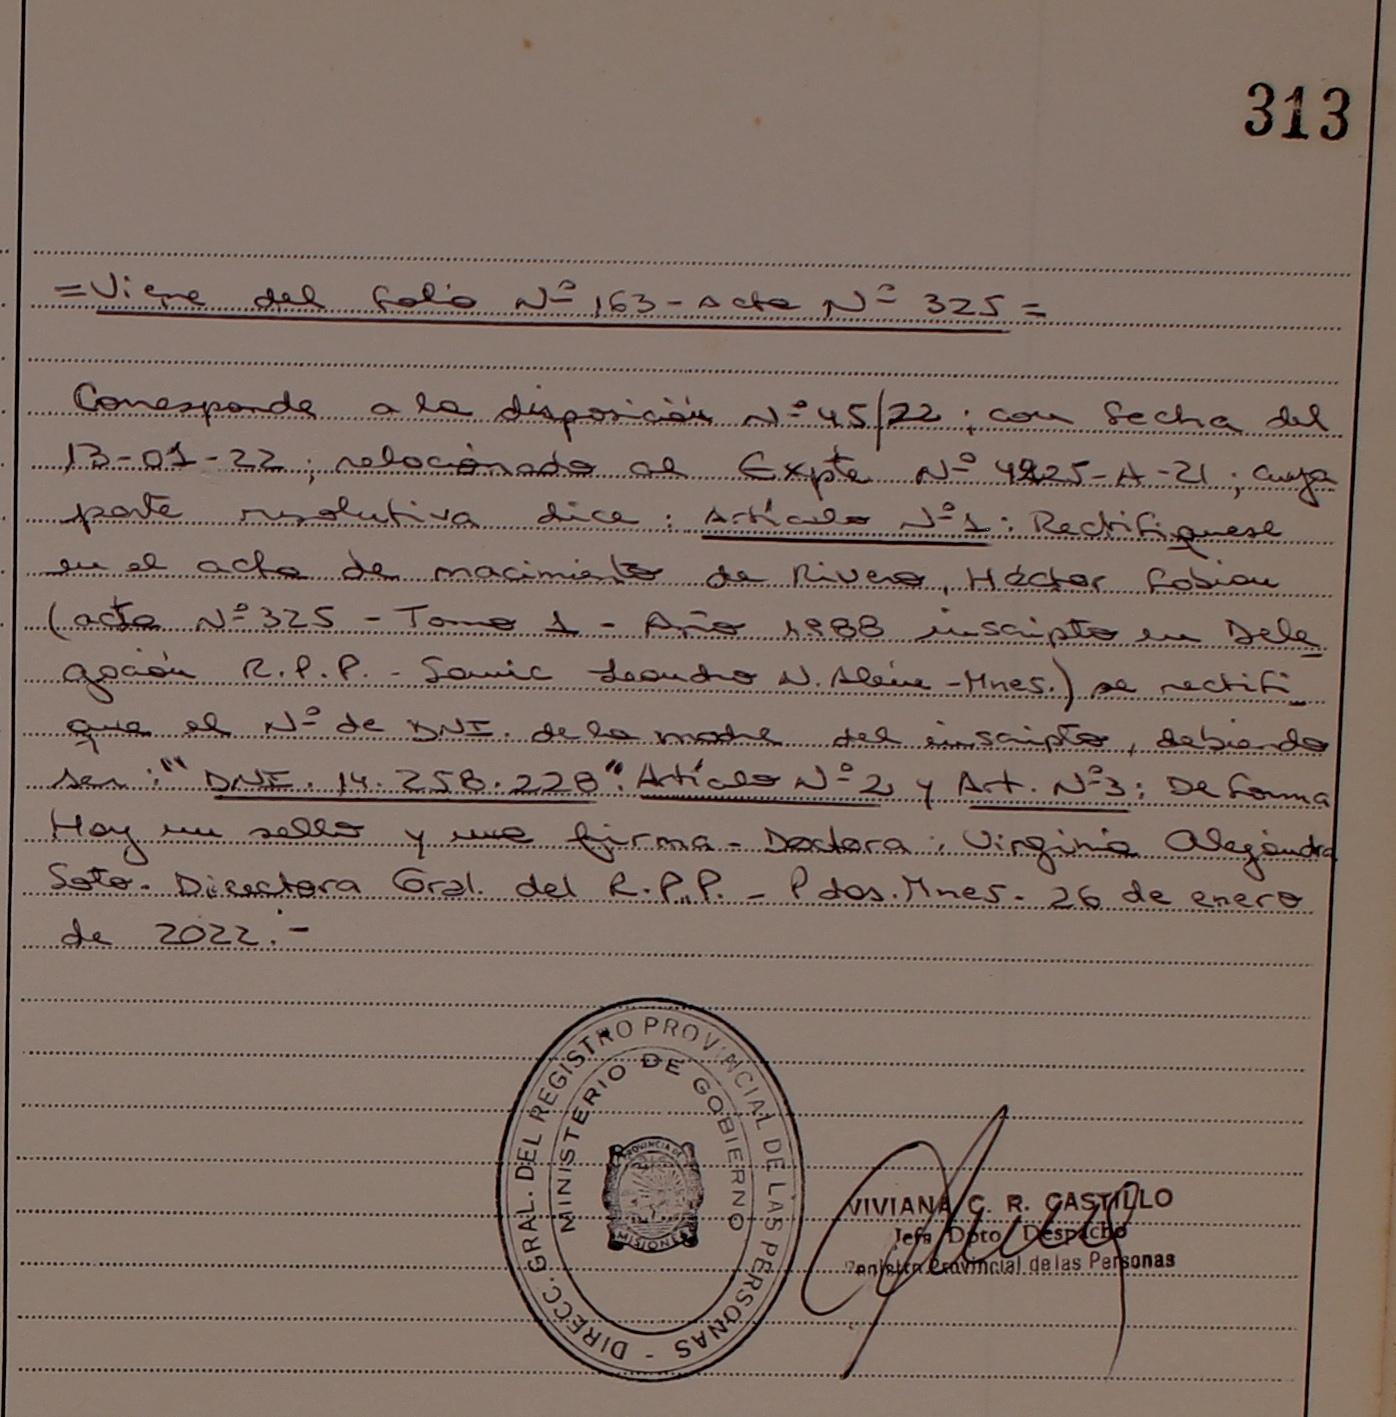 313
=Viene del folio Nº 163 - Acta Nº 325=
Corresponde a la disposición Nº 45/22; con fecha del
13-01-22; relacionado al Expte Nº 4225-A-21; cuya
parte resolutiva dice: Artículo Nº1: Rectifíquese
en el acta de nacimiento de Rivero, Héctor Fabian
(acta Nº 325 - Tomo 1 - Año 1988 inscripto en Dele
gación R.P.P. - Samic Leandro N. Alem - Mnes.) se rectifi_
que el Nº de DNI. de la madre del inscripto, debiendo
ser: "DNI. 14.258.228". Artículo Nº2 y Art. Nº3: De forma
Hay un sello y una firma - Doctora: Virginia Alejandra
Soto - Directora Gral. del R.P.P. - Pdas. Mnes - 26 de enero
de 2022.-
DIRECC. GRAL. DEL REGISTRO PROVINCIAL DE LAS PERSONAS -
MINISTERIO DE GOBIERNO
PROVINCIA DE
MISIONES
VIVIANA C. R. CASTILLO
Jefa Dpto Despacho
Registro Provincial de las Personas